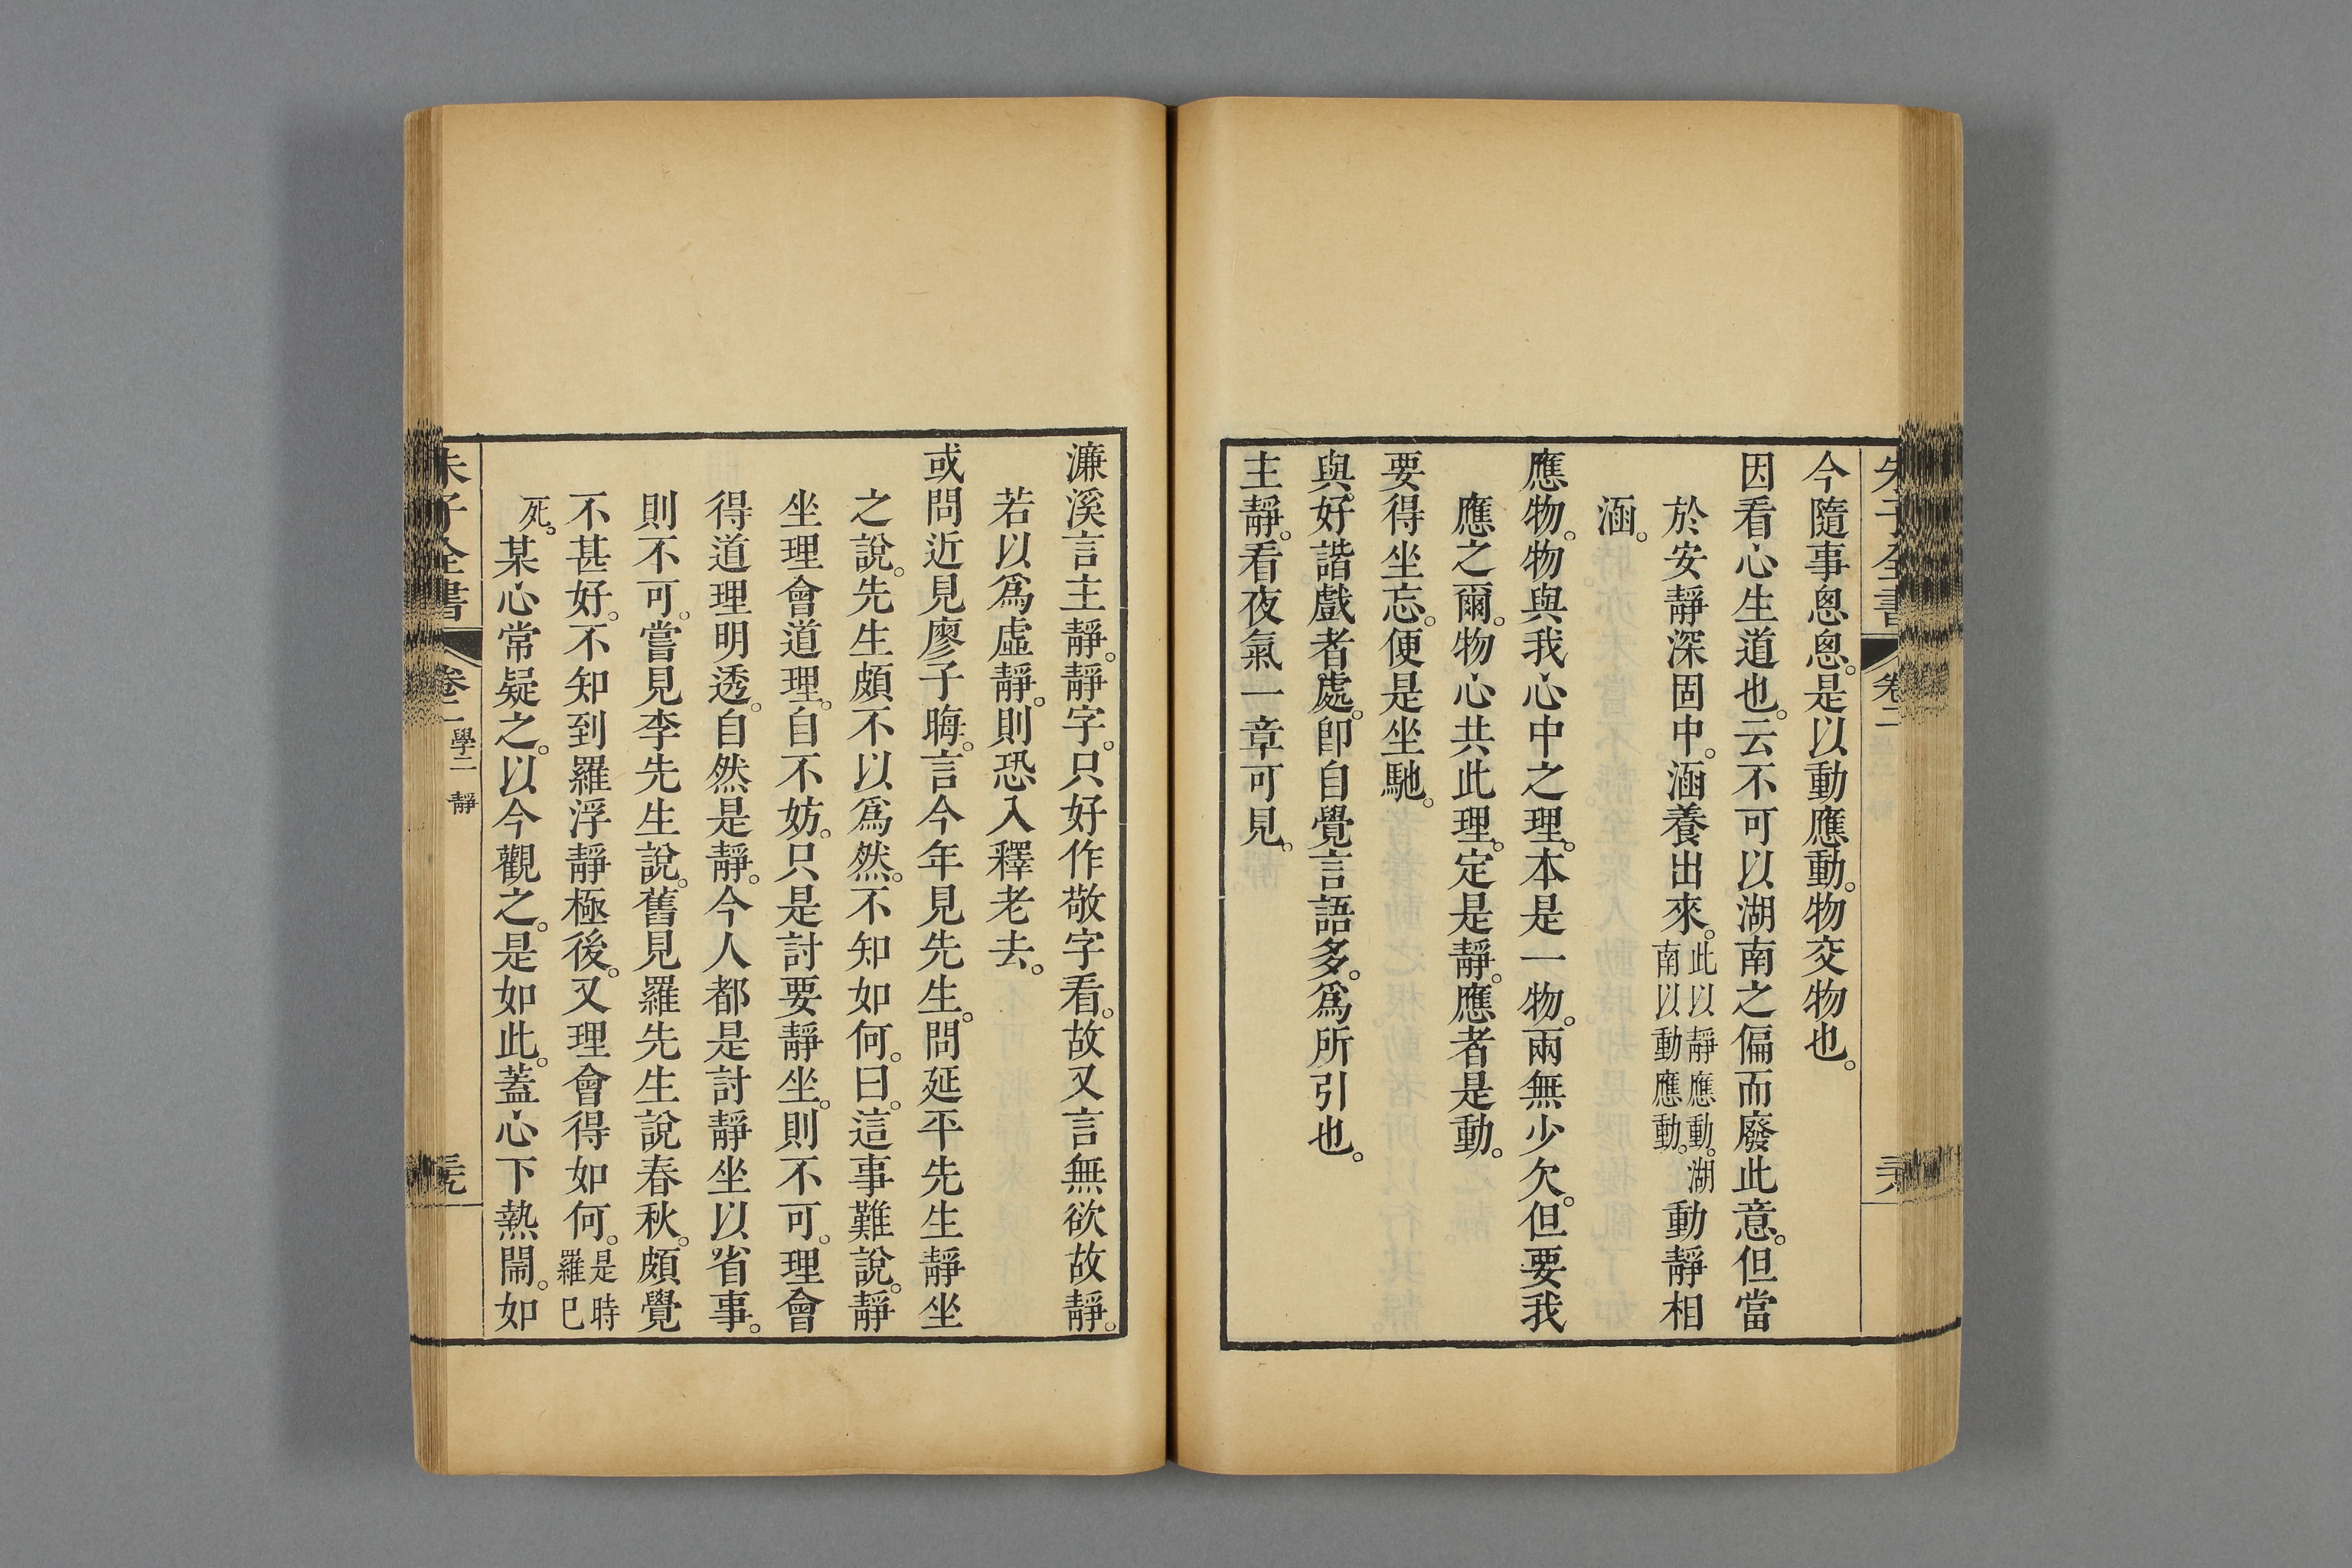 朱子全書
卷二
今隨事悤悤。是以動應動。物交物也。
因看心生道也。云不可以湖南之偏而廢此意。但當
於安靜深固中。涵養出來。此以靜應動。湖南以動應動。動靜相
涵。
應物。物與我心中之理。本是一物。兩無少欠。但要我
應之爾。物心共此理。定是靜。應者是動。
要得坐忘。便是坐馳。
與好諧戲者處。卽自覺言語多。爲所引也。
主靜。看夜氣一章可見。
濂溪言主靜。靜字。只好作敬字看。故又言無欲故靜。
若以爲虛靜。則恐入釋老去。
或問近見廖子晦。言今年見先生。問延平先生靜坐
之說。先生頗不以爲然。不知如何。曰。這事難說。靜
坐理會道理。自不妨。只是討要靜坐。則不可。理會
得道理明透。自然是靜。今人都是討靜坐以省事。
則不可。嘗見李先生說。舊見羅先生說春秋。頗覺
不甚好。不知到羅浮靜極後。又理會得如何。是時羅已
死。某心常疑之。以今觀之。是如此。蓋心下熱鬧。如
朱子全書
卷二
學二 靜